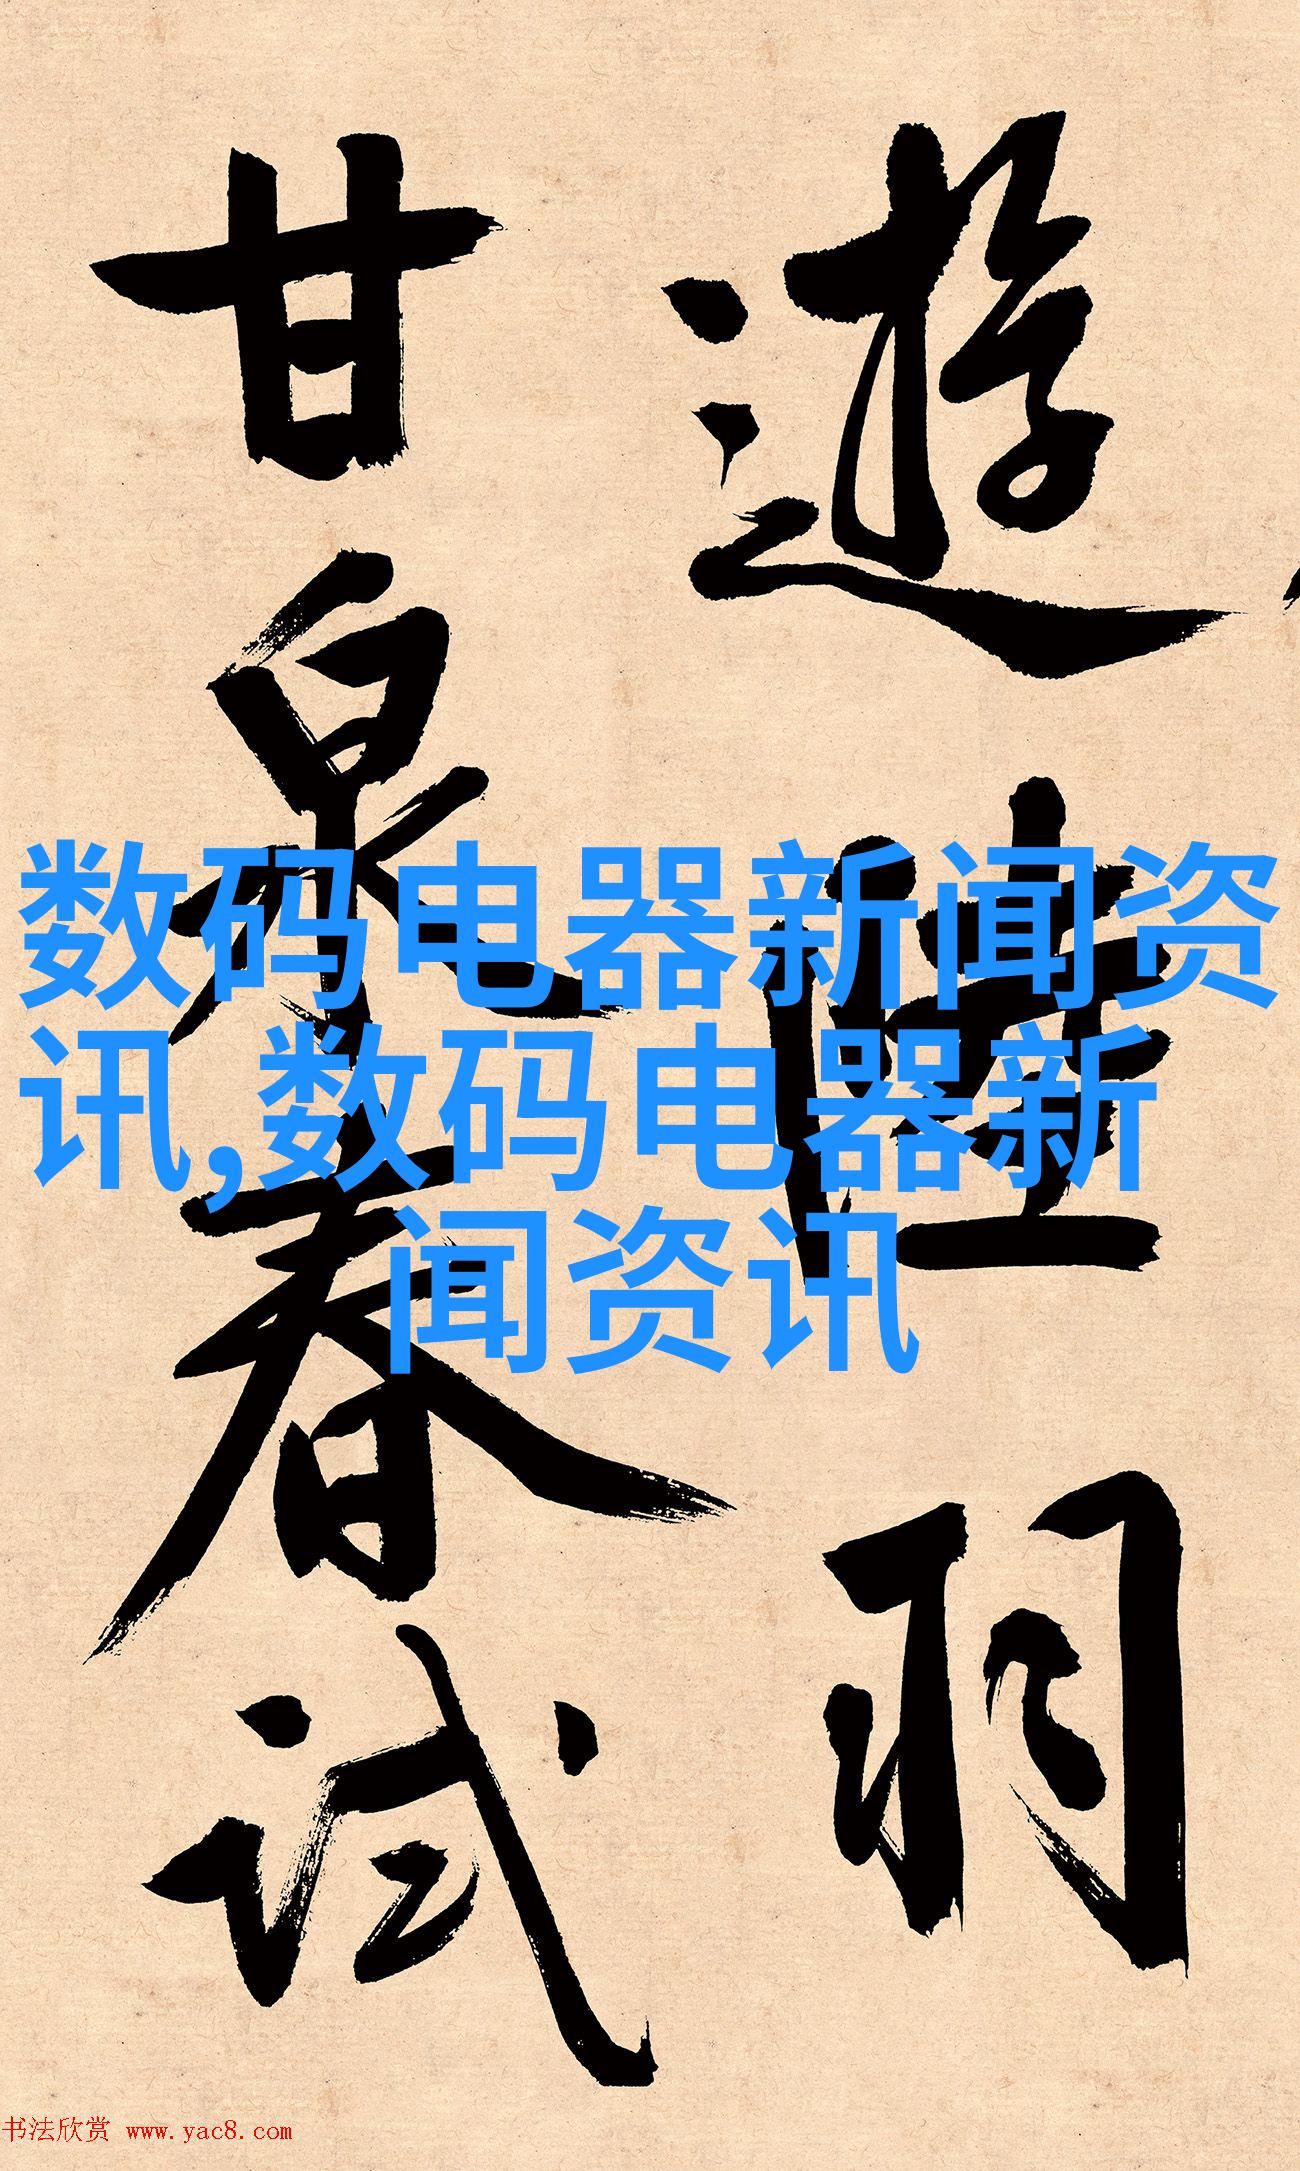 遊陸羽
甘泉春試
数码电器新闻资
讯,数码电器新
闻资讯
书法欣赏 www.yac8.com